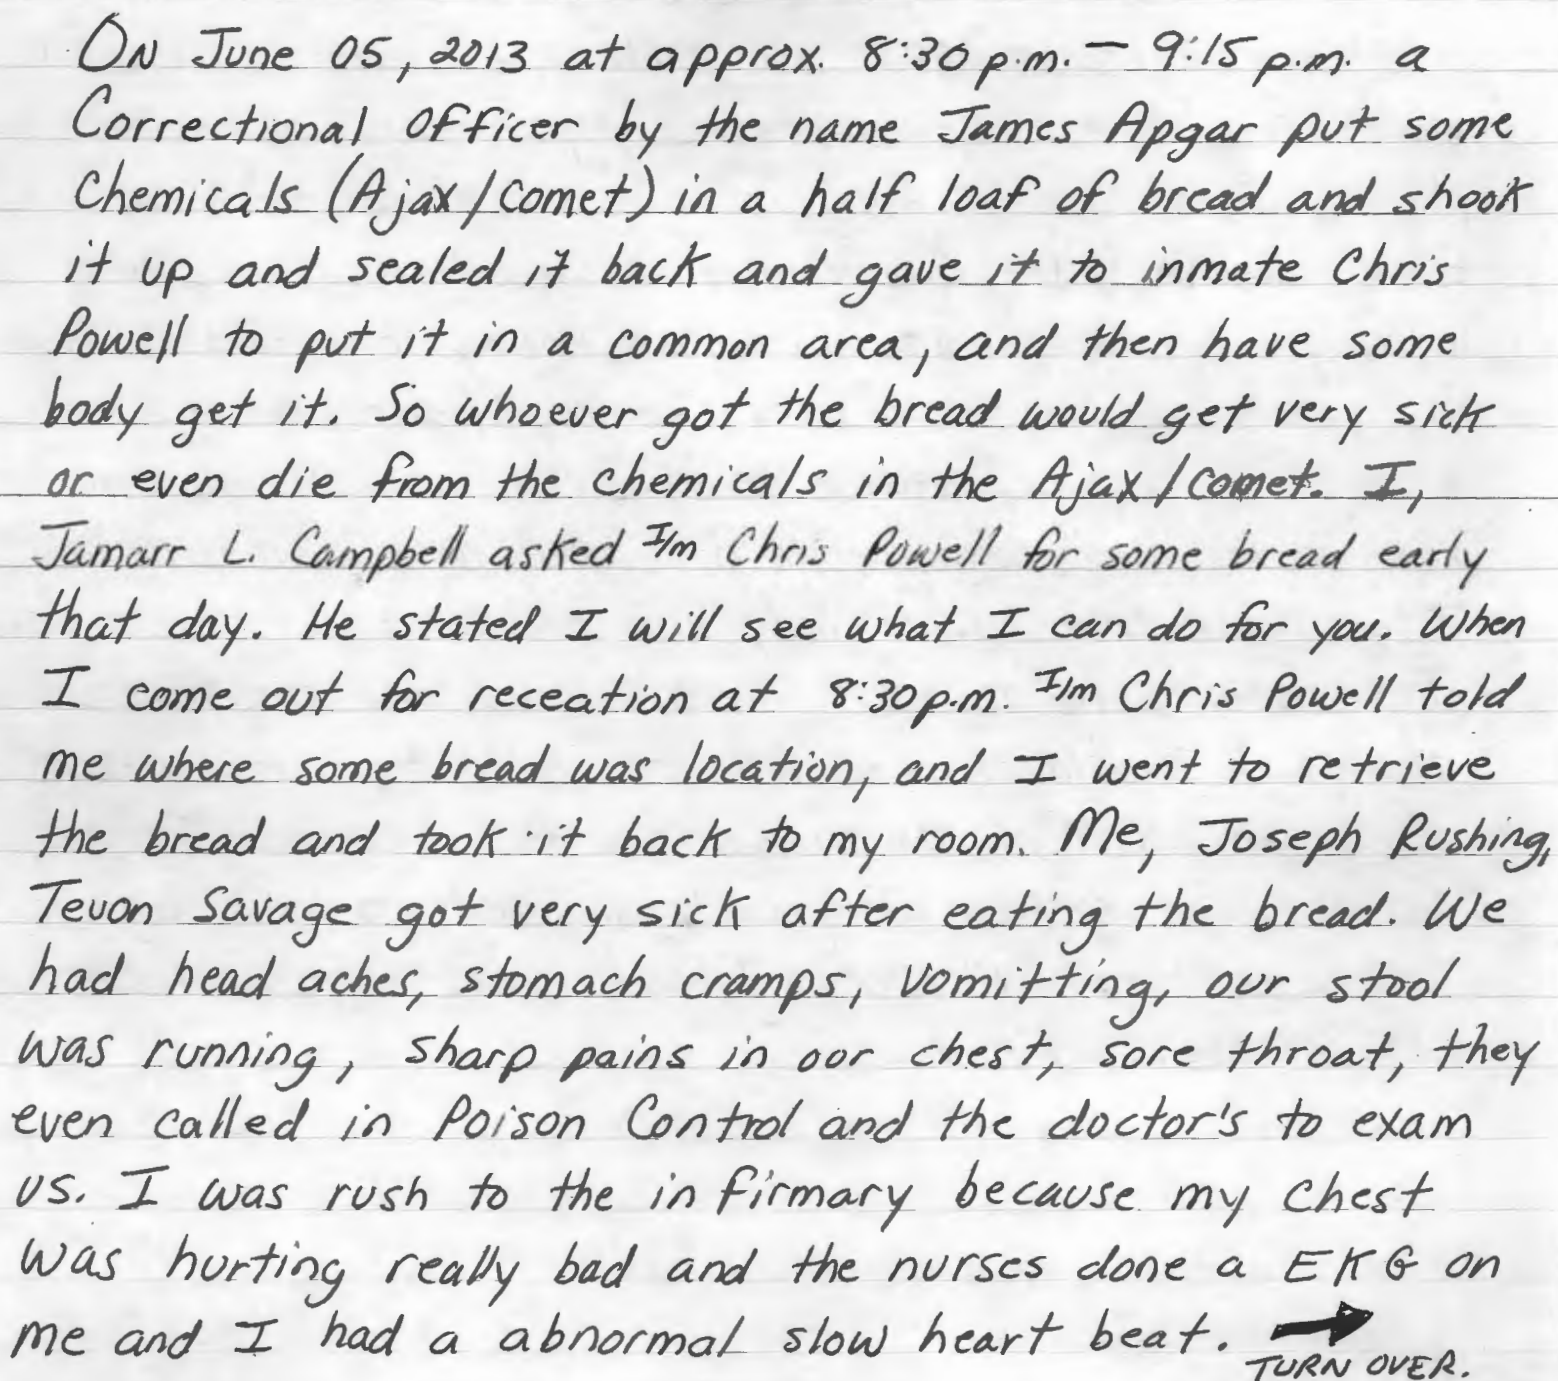 ON June 05, 2013 at approx. 8:30 p.m. — 9:15 p.m. a
Correctional Officer by the name James Apgar put some
Chemicals (Ajax/Comet) in a half loaf of bread and shook
it up and sealed it back and gave it to inmate Chris
Powell to put it in a common area, and then have some
body get it. So whoever got the bread would get very sick
or even die from the chemicals in the Ajax/Comet. I,
Jamarr L. Campbell asked I/m Chris Powell for some bread early
that day. He stated I will see what I can do for you. When
I come out for receation at 8:30 p.m. I/m Chris Powell told
me where some bread was location, and I went to retrieve
the bread and took it back to my room. Me, Joseph Rushing,
Tevon Savage got very sick after eating the bread. We
had head aches, stomach cramps, vomitting, our stool
was running, sharp pains in our chest, sore throat, they
even called in Poison Control and the doctor's to exam
us. I was rush to the infirmary because my chest
was hurting really bad and the nurses done a EKG on
me and I had a abnormal slow heart beat. →
TURN OVER.